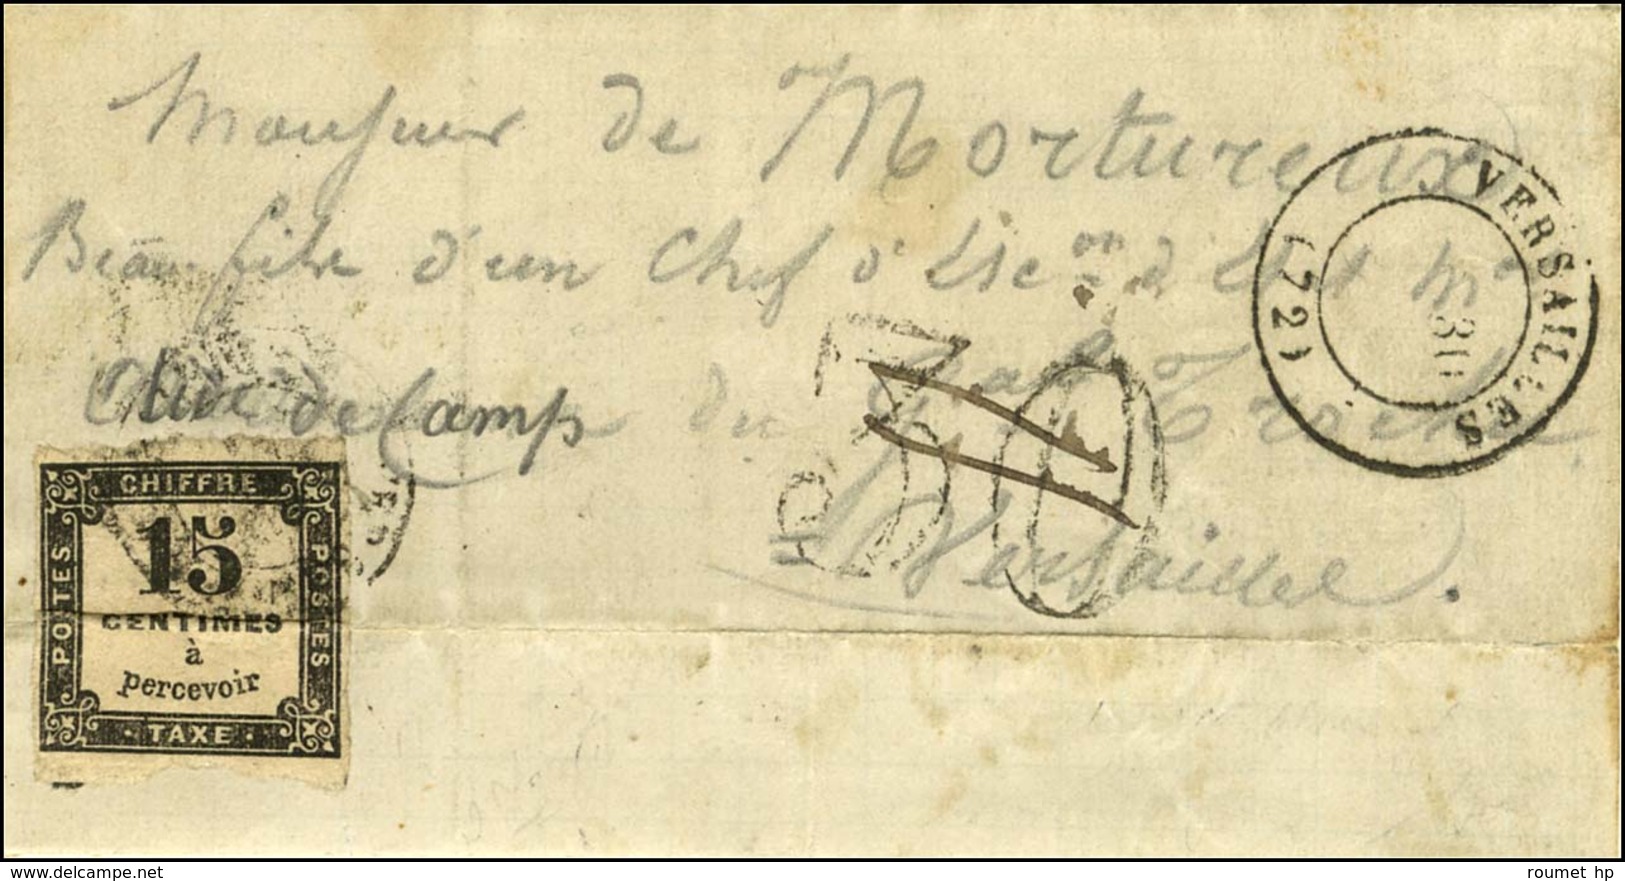 Monsieur de Mortureux
Beau-frère d'un Chef d'Esc.on d'Et M
Aide de Camp du Gral Trochu
Versailles.
VERSAILLES
(72)
30
CHIFFRE
15
CENTIMES
à
percevoir
POSTES
POSTES
· TAXE ·
www.delcampe.net
roumet hp